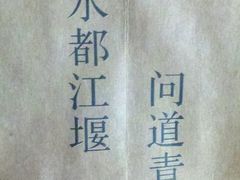 水都江堰
问道青